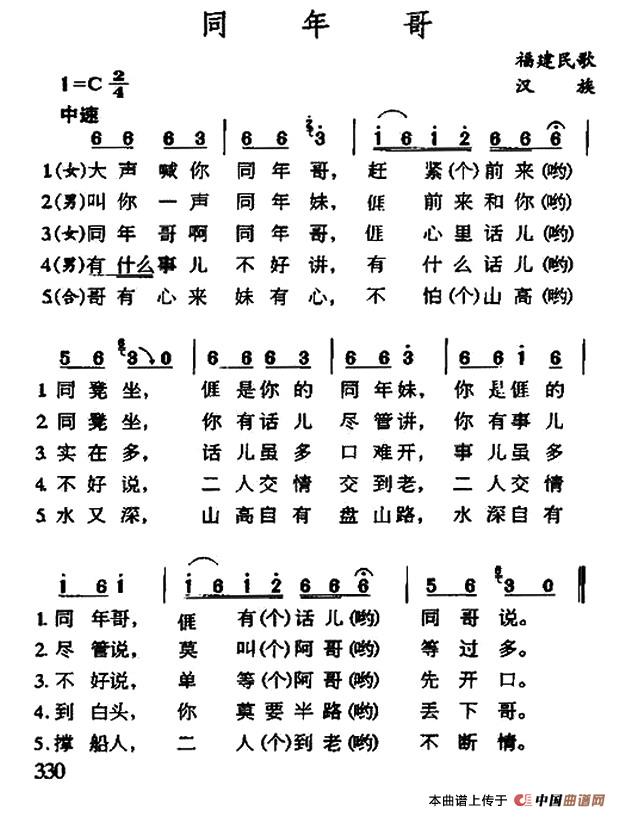 同年哥
福建民歌
1=C 2/4
汉族
中速
6 6 6 3 | 6 6 3 | i 6 i 2 6 6 6 |
1(女)大声喊你 同年哥, 赶紧(个)前来(哟)
2(男)叫你一声 同年妹, 𠊎前来和你(哟)
3(女)同年哥啊 同年哥, 𠊎心里话儿(哟)
4(男)有什么事儿 不好讲, 有什么话儿(哟)
5.(合)哥有心来 妹有心, 不怕(个)山高(哟)
5 6 3 0 | 6 6 6 3 | 6 6 3 | 6 6 i 6 |
1.同凳坐, 𠊎是你的 同年妹, 你是𠊎的
2.同凳坐, 你有话儿 尽管讲, 你有事儿
3.实在多, 话儿虽多 口难开, 事儿虽多
4.不好说, 二人交情 交到老, 二人交情
5.水又深, 山高自有 盘山路, 水深自有
i 6 i | i 6 i 2 6 6 6 | 5 6 3 0 ‖
1.同年哥, 𠊎有(个)话儿(哟) 同哥说。
2.尽管说, 莫叫(个)阿哥(哟) 等过多。
3.不好说, 单等(个)阿哥(哟) 先开口。
4.到白头, 你莫要半路(哟) 丢下哥。
5.撑船人, 二人(个)到老(哟) 不断情。
330
本曲谱上传于 中国曲谱网